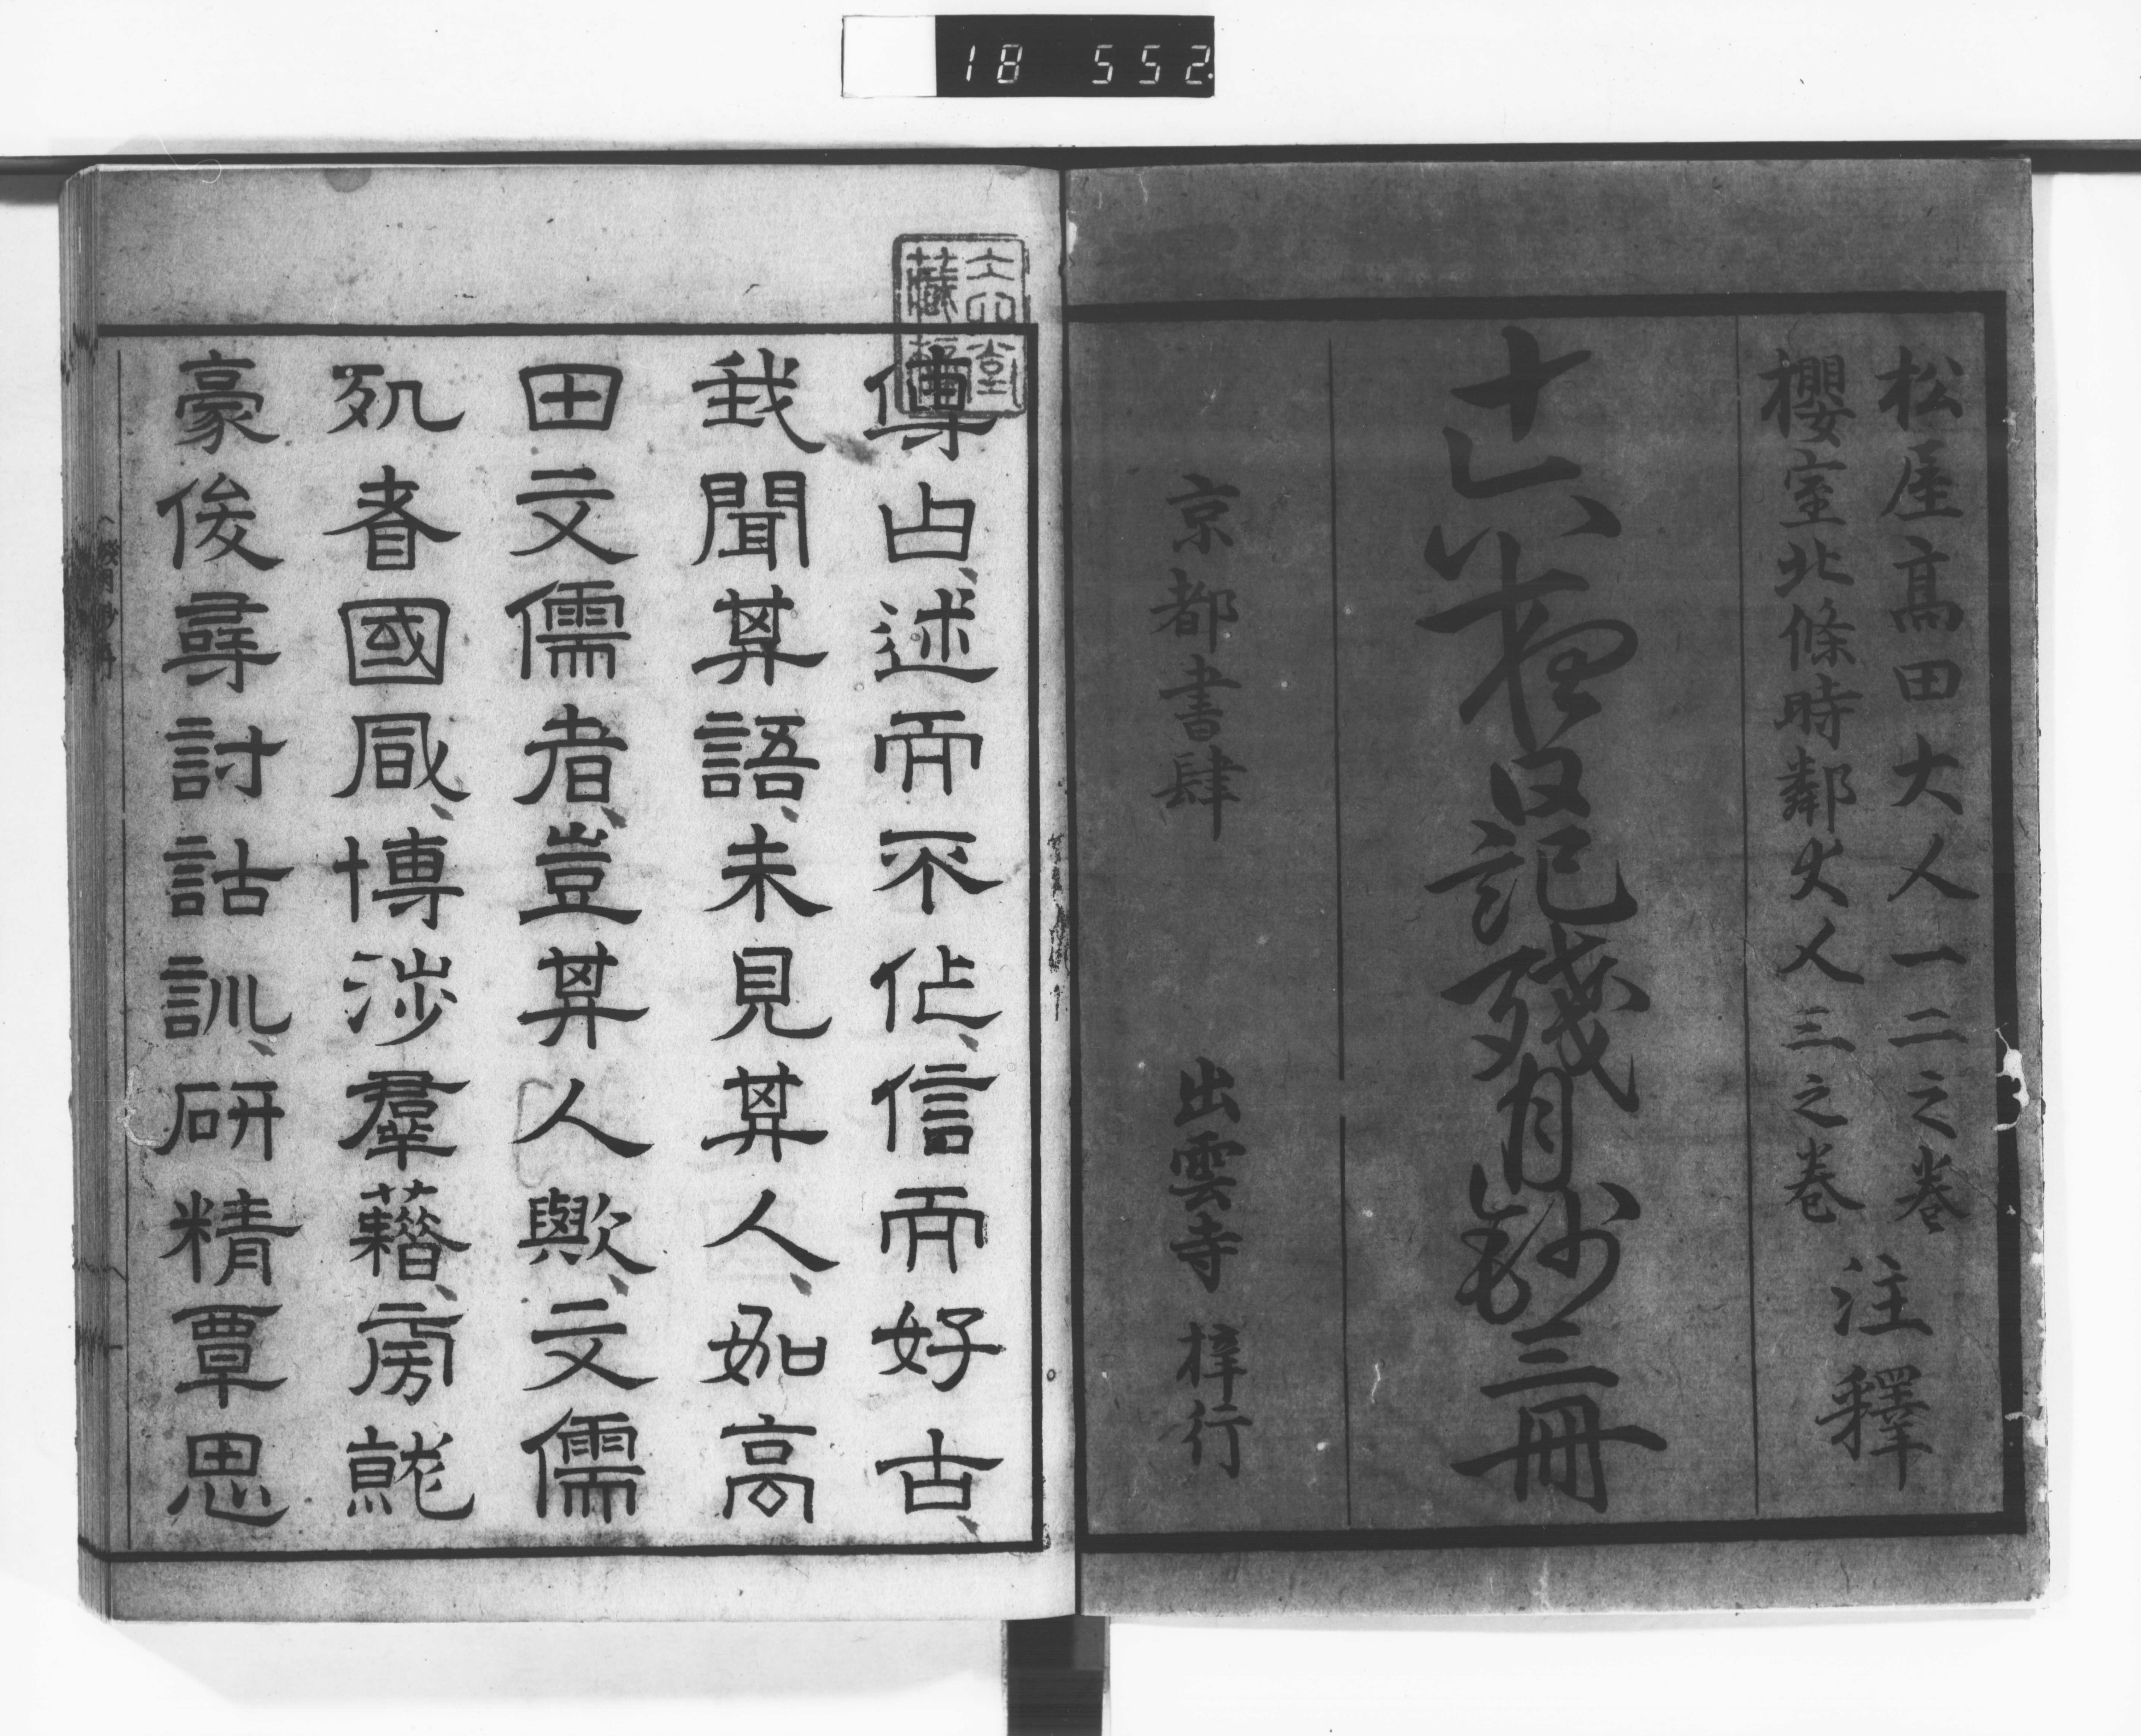 18 552
松屋髙田大人一二之巻
櫻室北條時鄰大人三之巻
注釋
十六夜日記殘月鈔三冊
京都書肆 出雲寺 梓行
傳曰、述而不作、信而好古、
我聞其語、未見其人、如高
田文儒者、豈其人歟、文儒
夙耆國風、博涉羣藉、殆就
豪俊尋討詁訓、研精覃思